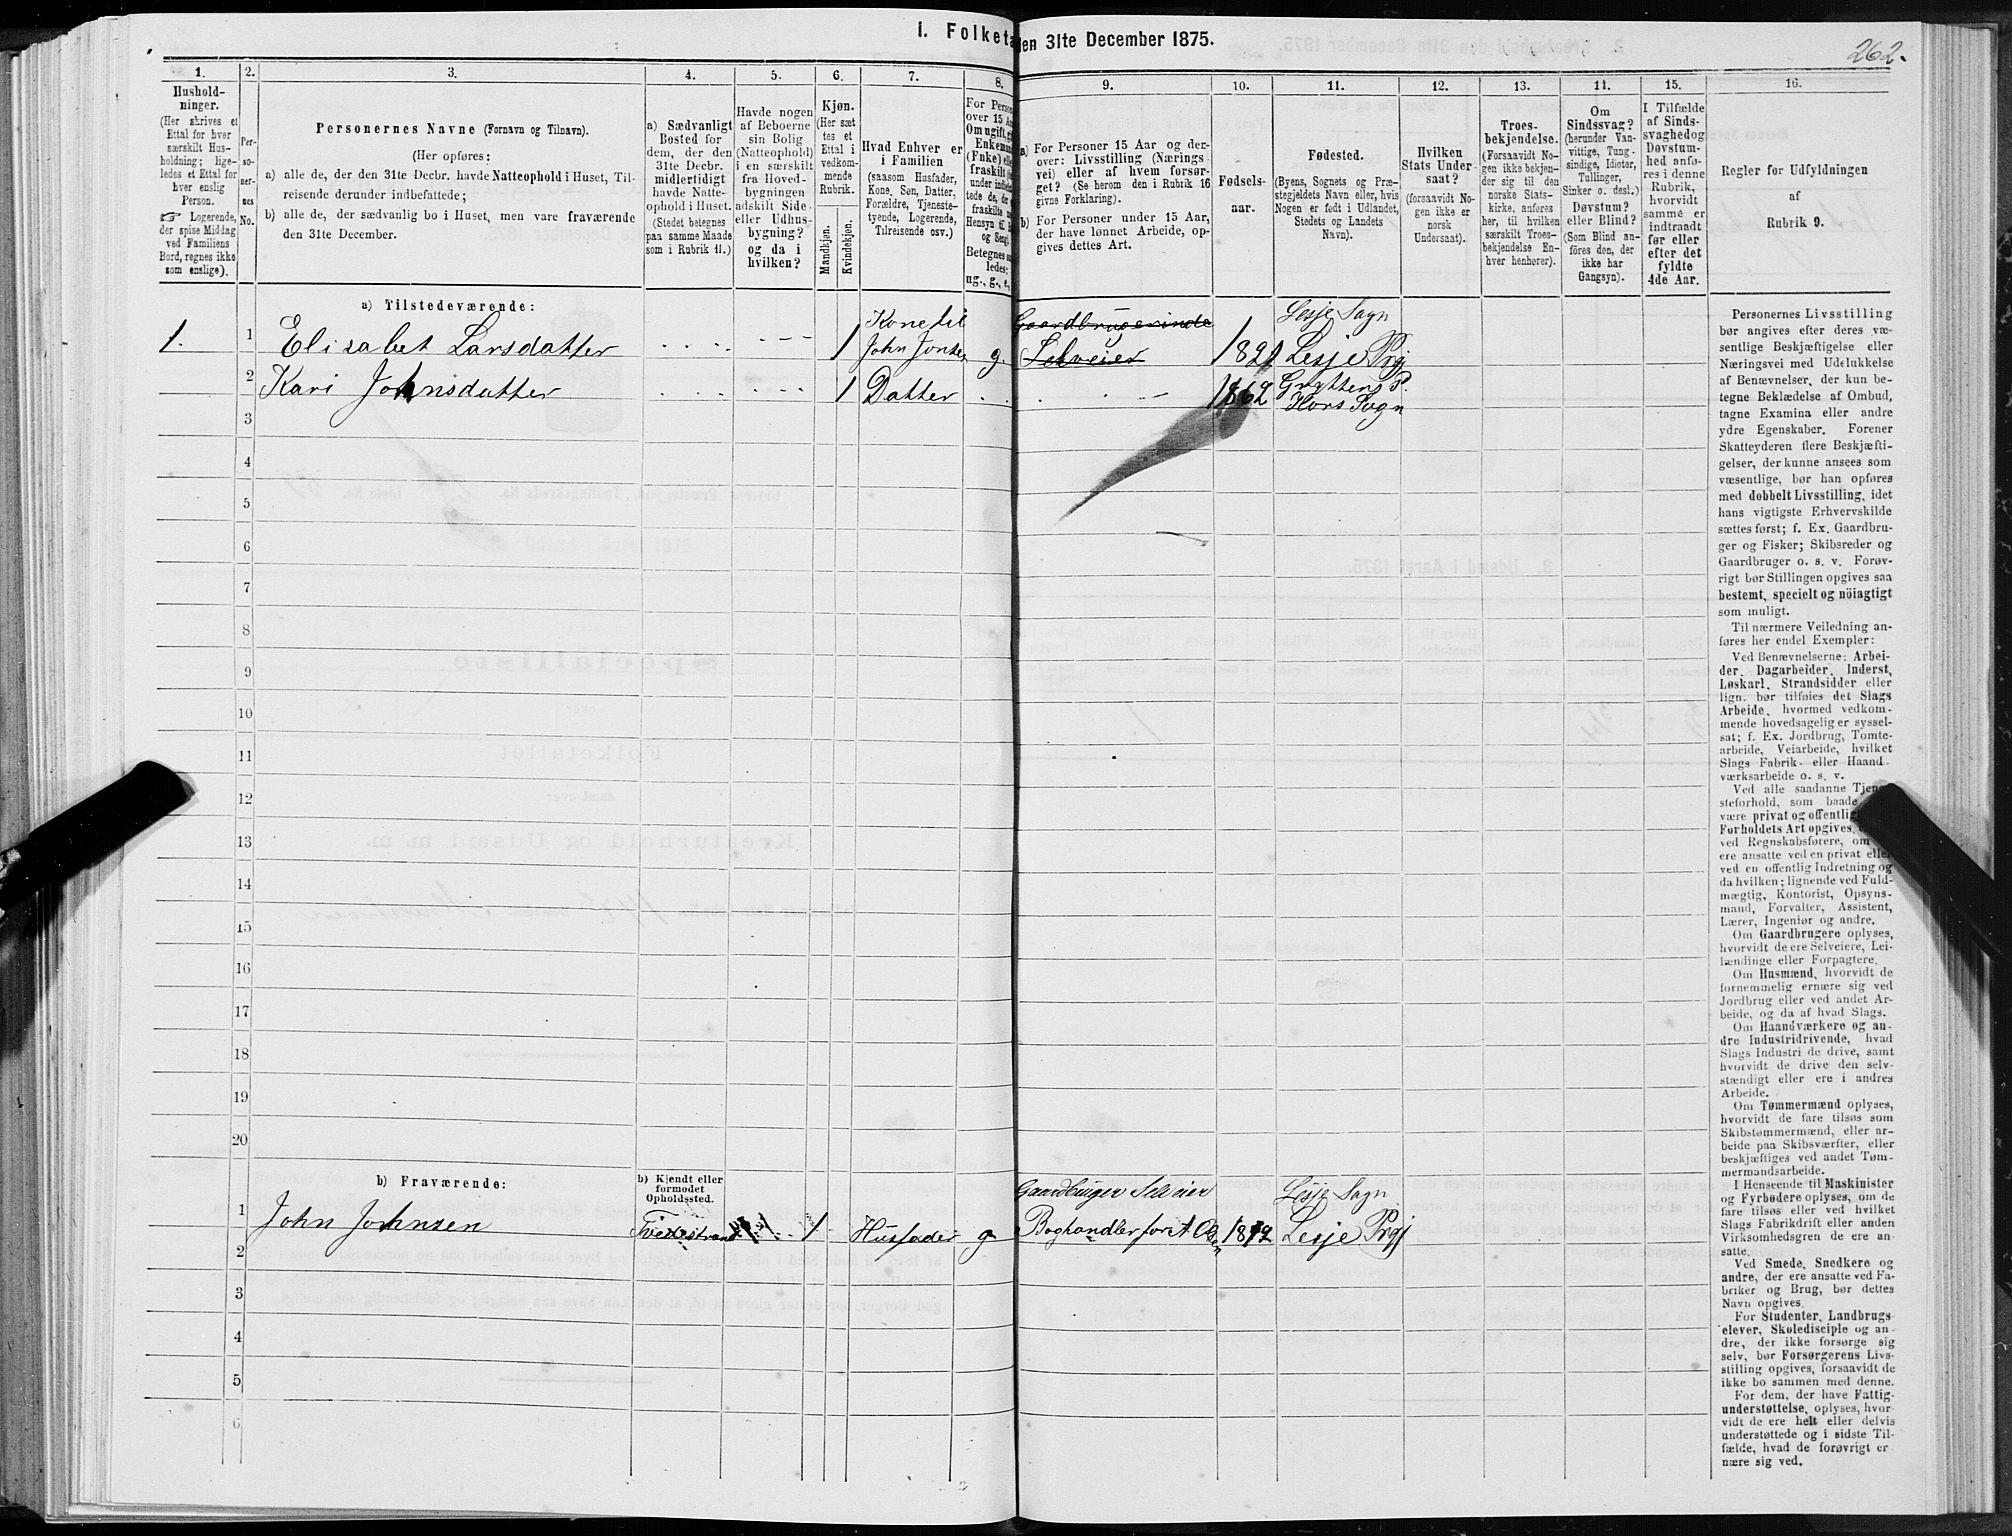 262.
1. Folketa
den 31te December 1875.
1.
2.
3.
4.
5.
6.
7.
8.
9.
10.
11.
12.
13.
14.
15.
16.
Hushold-
ninger.
(Her skrives et
Ettal for hver
særskilt Hus-
holdning; lige-
ledes et Ettal for
hver enslig
Person.
☞ Logerende,
der spise Middag
ved Familiens
Bord, regnes ikke
som enslige).
Per-
so-
ner-
nes
No.
Personernes Navne (Fornavn og Tilnavn).
(Her opføres:
a) alle de, der den 31te Decbr. havde Natteophold i Huset, Til-
reisende derunder indbefattede;
b) alle de, der sædvanlig bo i Huset, men vare fraværende
den 31te December.
a) Sædvanligt
Bosted for
dem, der den
31te Decbr.
midlertidigt
havde Natte-
ophold i Huset.
(Stedet betegnes
paa samme Maade
som i Rubrik 11.)
Havde nogen
af Beboerne
sin Bolig
(Natteophold)
i en særskilt
fra Hoved-
bygningen
adskilt Side-
eller Udhus-
bygning?
og da i
hvilken?
Kjøn.
(Her sæt
tes et
Ettal i
vedkom-
mende
Rubrik.
Mandkjøn.
Kvindekjøn.
Hvad Enhver er
i Familien
(saasom Husfader,
Kone, Søn, Datter,
Forældre, Tjeneste-
tyende, Logerende,
Tilreisende osv.)
For Person
over 15 Aa
Om ugift, gi
Enkem
(Fnke) el
fraskilt
under indbe
tede de, der
fraskilte
Hensyn til
og Seng)
Betegnes
ledes;
ug., g., e.,
a) For Personer 15 Aar og der-
over: Livsstilling (Nærings-
vei) eller af hvem forsør-
get? (Se herom den i Rubrik 16
givne Forklaring).
b) For Personer under 15 Aar,
der have lønnet Arbeide, op-
gives dettes Art.
Fødsels-
aar.
Fødested.
(Byens, Sognets og Præ-
stegjeldets Navn eller, hvis
Nogen er født i Udlandet,
Stedets og Landets
Navn).
Hvilken
Stats Under-
saat?
(forsaavidt No-
gen ikke er
norsk
Undersaat).
Troes-
bekjendelse.
(Forsaavidt No-
gen ikke bekjen-
der sig til den
norske Stats-
kirke, anføres
her, til hvilken
særskilt Troes-
bekjendelse En-
hver henhører).
Om
Sindssvag?
(herunder Van-
vittige, Tung-
sindige, Idioter,
Tullinger,
Sinker o. desl.)
Døvstum?
eller Blind?
(Som Blind an-
føres den, der
ikke har
Gangsyn).
I Tilfælde
af Sinds-
svaghed og
Døvstum-
hed anfø-
res i denne
Rubrik,
hvorvidt
samme er
indtraadt
før eller
efter det
fyldte
4de Aar.
Regler for Udfyldningen
af
Rubrik 9.
a) Tilstedeværende:
Kone til
Gaardbrugerinde
Lesje Sogn
1. 1 Elisabet Larsdatter 1 John Jonsen g. Selveier 1821 Lesje Prgj
2 Kari Johnsdatter 1 Datter 1862 Gryttens P.
Hors Sogn
3
4
5
6
7
8
9
10
11
12
13
14
15
16
17
18
19
20
b) Fraværende:
b) Kjendt eller
formodet
Opholdssted.
Gaardbruger Selveier
Lesje Sogn
1 John Johnsen Tvedestrand 1 Husfader g Boghandler for A Olsen Lesje Prgj
2
3
4
5
6
Personernes Livsstilling
bør angives efter deres væ-
sentlige Beskjæftigelse eller
Næringsvei med Udelukkelse
af Benævnelser, der kun be-
tegne Beklædelse af Ombud,
tagne Examina eller andre
ydre Egenskaber. Forener
Skatteyderen flere Beskjæfti-
gelser, der kunne ansees som
væsentlige, bør han opføres
med dobbelt Livsstilling, idet
hans vigtigste Erhvervskilde
sættes først; f. Ex. Gaardbru-
ger og Fisker; Skibsreder og
Gaardbruger o. s. v. Forøv-
rigt bør Stillingen opgives saa
bestemt, specielt og nöiagtigt
som muligt.
Til nærmere Veiledning an-
føres her endel Exempler:
Ved Benævnelserne: Arbei-
der, Dagarbeider, Inderst,
Løskarl, Strandsidder eller
lign. bør tilføies det Slags
Arbeide, hvormed vedkom-
mende hovedsagelig er syssel-
sat; f. Ex. Jordbrug, Tomte-
arbeide, Veiarbeide, hvilket
Slags Fabrik- eller Haand-
værksarbeide o. s. v.
Ved alle saadanne Tjene-
steforhold, som baade
være privat og offentlig
Forholdets Art opgives,
ved Regnskabsførere, om
ere ansatte ved en privat eller
ved en offentlig Indretning og
da hvilken; lignende ved Fuld-
mægtig, Kontorist, Opsyns-
mand, Forvalter, Assistent,
Lærer, Ingeniør og andre.
Om Gaardbrugere oplyses,
hvorvidt de ere Selveiere, Lei-
lændinge eller Forpagtere.
Om Husmænd, hvorvidt de
fornemmelig ernære sig ved
Jordbrug eller ved andet Ar-
beide, og da af hvad Slags.
Om Haandværkere og an-
dre Industridrivende, hvad
Slags Industri de drive, samt
hvorvidt de drive den selv-
stændigt eller ere i andres
Arbeide.
Om Tømmermænd oplyses,
hvorvidt de fare tilsøs som
Skibstømmermænd, eller ar-
beide paa Skibsværfter, eller
beskjæftiges ved andet Tøm-
mermandsarbeide.
I Henseende til Maskinister
og Fyrbødere oplyses, om de
fare tilsøs eller ved hvilket
Slags Fabrikdrift eller anden
Virksomhedsgren de ere an-
satte.
Ved Smede, Snedkere og
andre, der ere ansatte ved Fa-
briker og Brug, bør dettes
Navn opgives.
For Studenter, Landbrugs-
elever, Skoledisciple og an-
dre, der ikke forsørge sig
selv, bør Forsørgerens Livs-
stilling opgives, forsaavidt de
ikke bo sammen med denne.
For dem, der have Fattig-
understøttelse, oplyses, hvor-
vidt de ere helt eller delvis
understøttede og i sidste Til-
fælde, hvad de forøvrigt er-
nære sig ved.